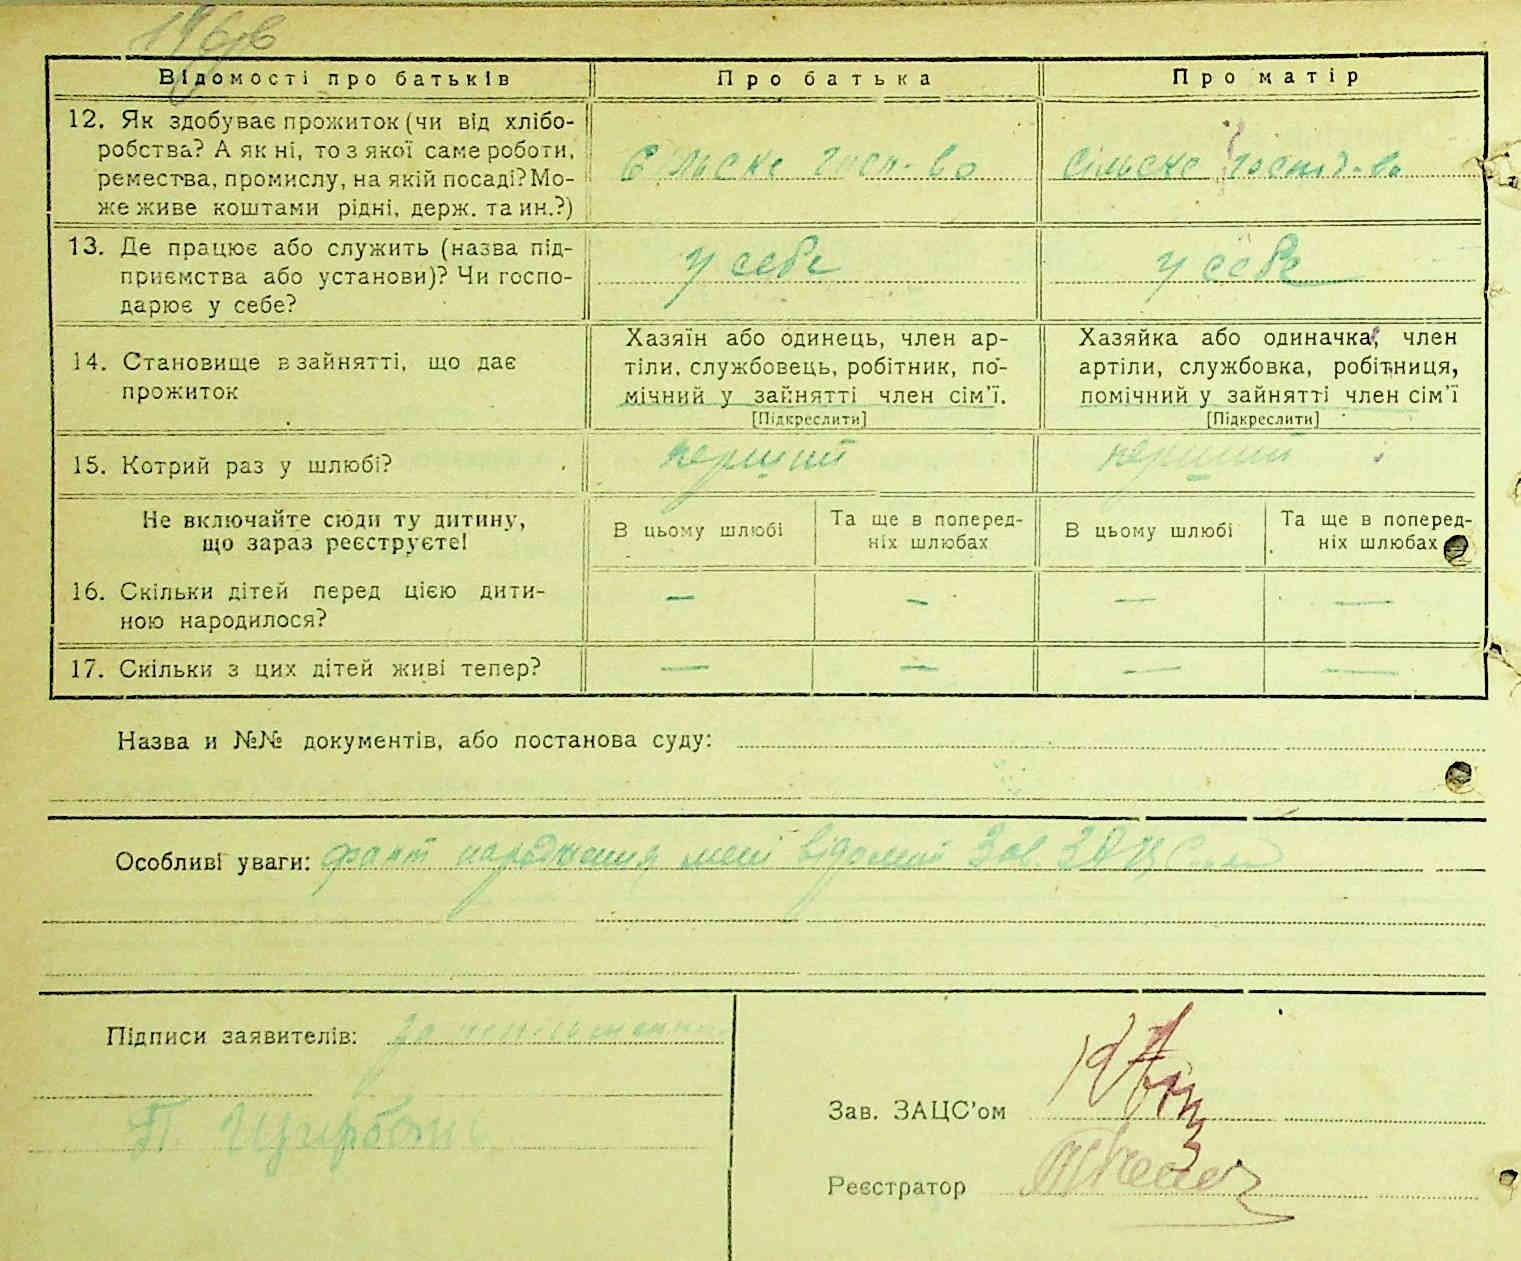 Відомості про батьків
Про батька
Про матір
12. Як здобуває прожиток (чи від хлібо-
робства? А як ні, то з якої саме роботи,
ремества, промислу, на якій посаді? Мо-
же живе коштами рідні, держ. та ин.?)
Сільске госп-во
Сільске господ-во
13. Де працює або служить (назва під-
приємства або установи)? Чи госпо-
дарює у себе?
у себе
у себе
14. Становище в зайнятті, що дає
прожиток
Хазяїн або одинець, член ар-
тіли, службовець, робітник, по-
мічний у зайнятті член сім'ї.
[Підкреслити]
Хазяйка або одиначка, член
артіли, службовка, робітниця,
помічний у зайнятті член сім'ї
[Підкреслити]
15. Котрий раз у шлюбі?
перший
перший
Не включайте сюди ту дитину,
що зараз реєструєте!
В цьому шлюбі
Та ще в поперед-
ніх шлюбах
В цьому шлюбі
Та ще в поперед-
ніх шлюбах
16. Скільки дітей перед цією дити-
ною народилося?
— — — —
17. Скільки з цих дітей живі тепер?
— — — —
Назва и №№ документів, або постанова суду:
Особливі уваги: факт народження мені відомий Зав. ЗАЦС
Підписи заявителів: за
П.
Зав. ЗАЦС'ом
Реєстратор